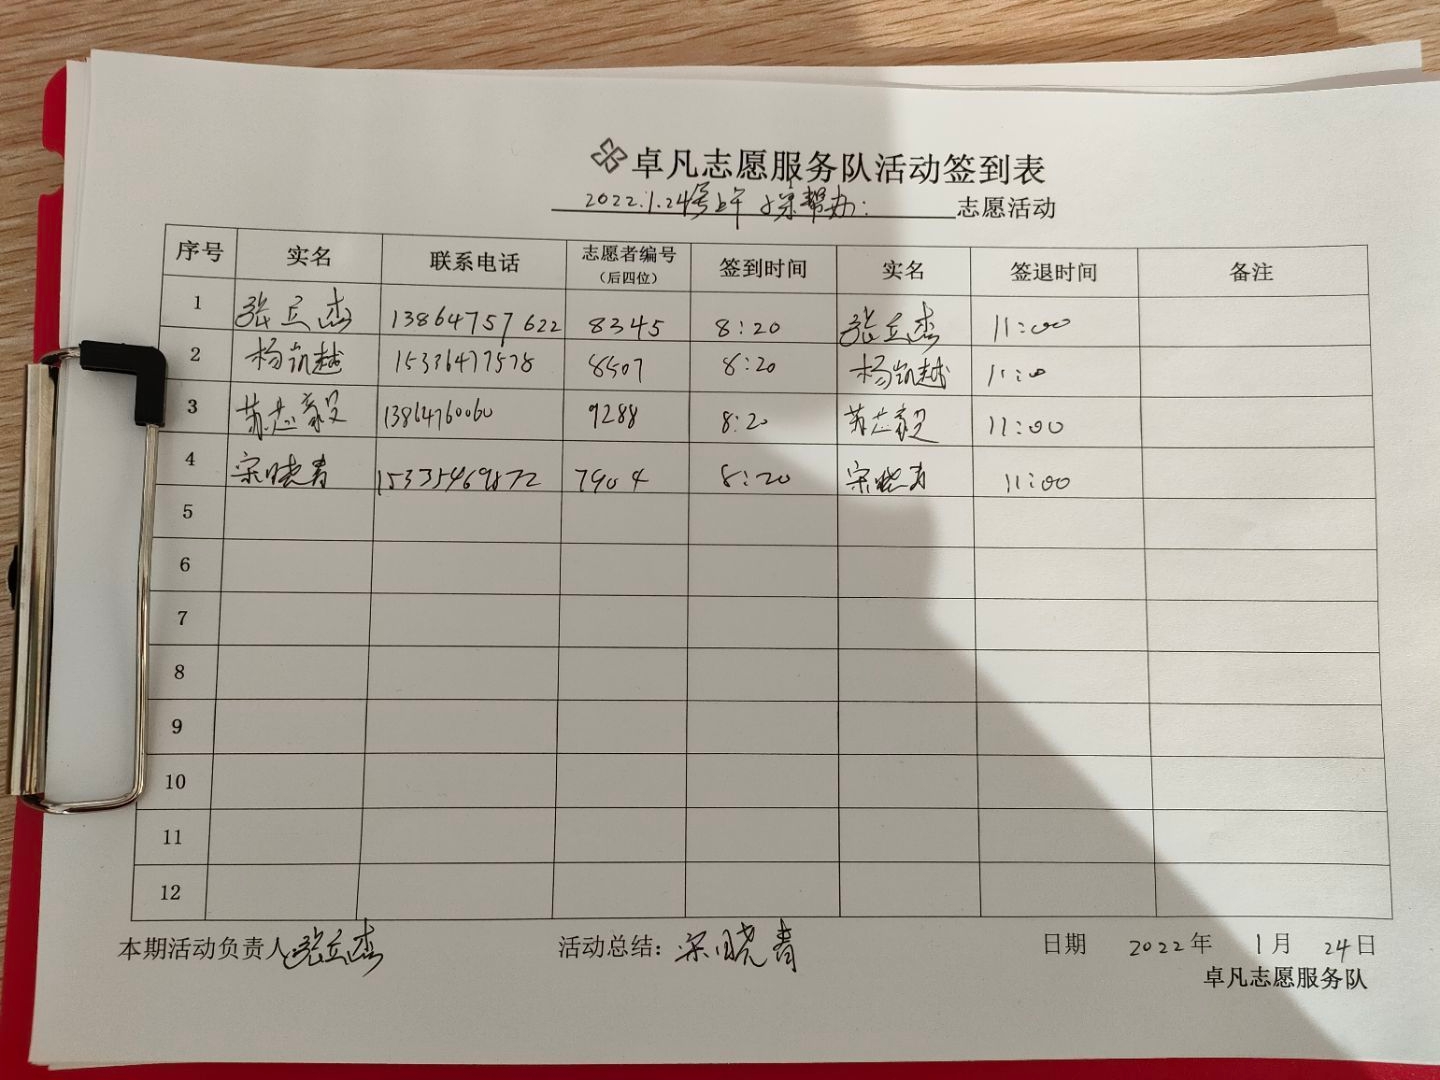 卓凡志愿服务队活动签到表
2022.1.24号上午 帮办: 志愿活动
序号 实名 联系电话 志愿者编号(后四位) 签到时间 实名 签退时间 备注
1 张立杰 13864757622 8345 8:20 张立杰 11:00
2 杨凯越 15336477578 8507 8:20 杨凯越 11:00
3 13864760060 9288 8:20 11:00
4 宋晓青 15335469872 7904 8:20 宋晓青 11:00
5
6
7
8
9
10
11
12
本期活动负责人:张立杰 活动总结:宋晓青 日期 2022年 1月 24日
卓凡志愿服务队